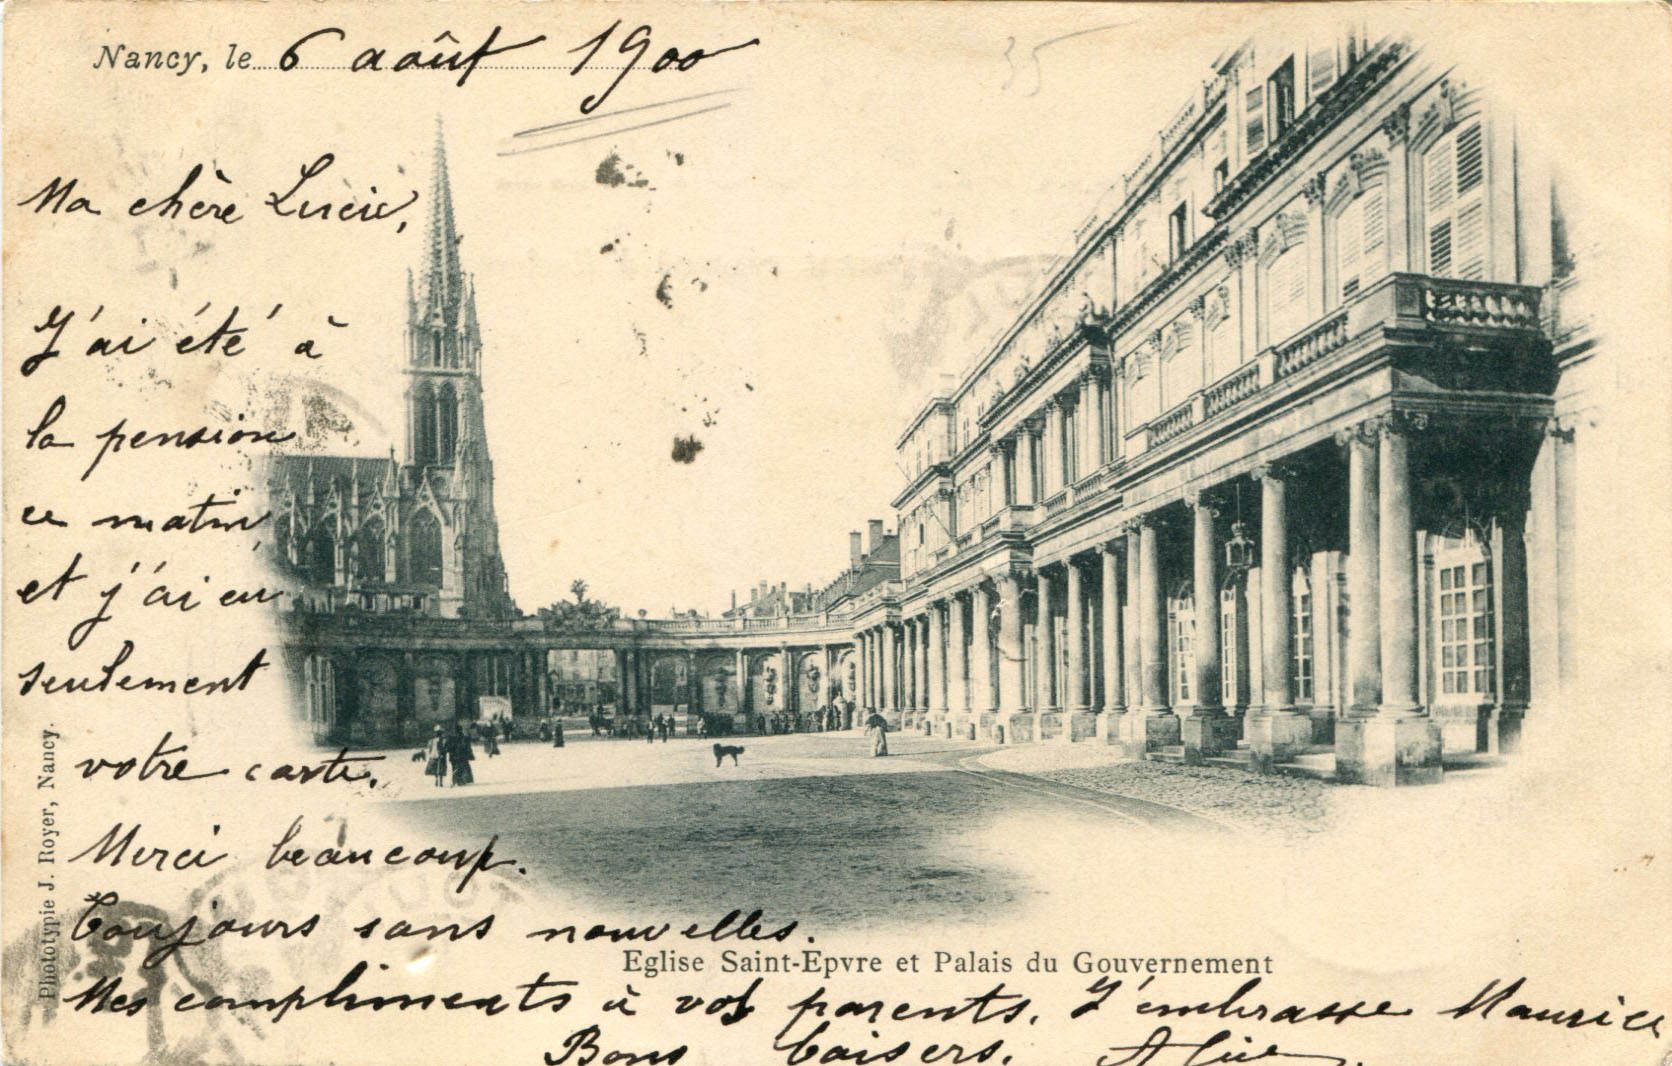 Nancy, le 6 août 1900
35
Ma chère Lucie,
J'ai été à
la pension
ce matin
et j'ai eu
seulement
votre carte.
Merci beaucoup.
Toujours sans nouvelles.
Eglise Saint-Epvre et Palais du Gouvernement
Mes compliments à vos parents. J'embrasse Maurice
Bons baisers.
Phototypie J. Royer, Nancy.